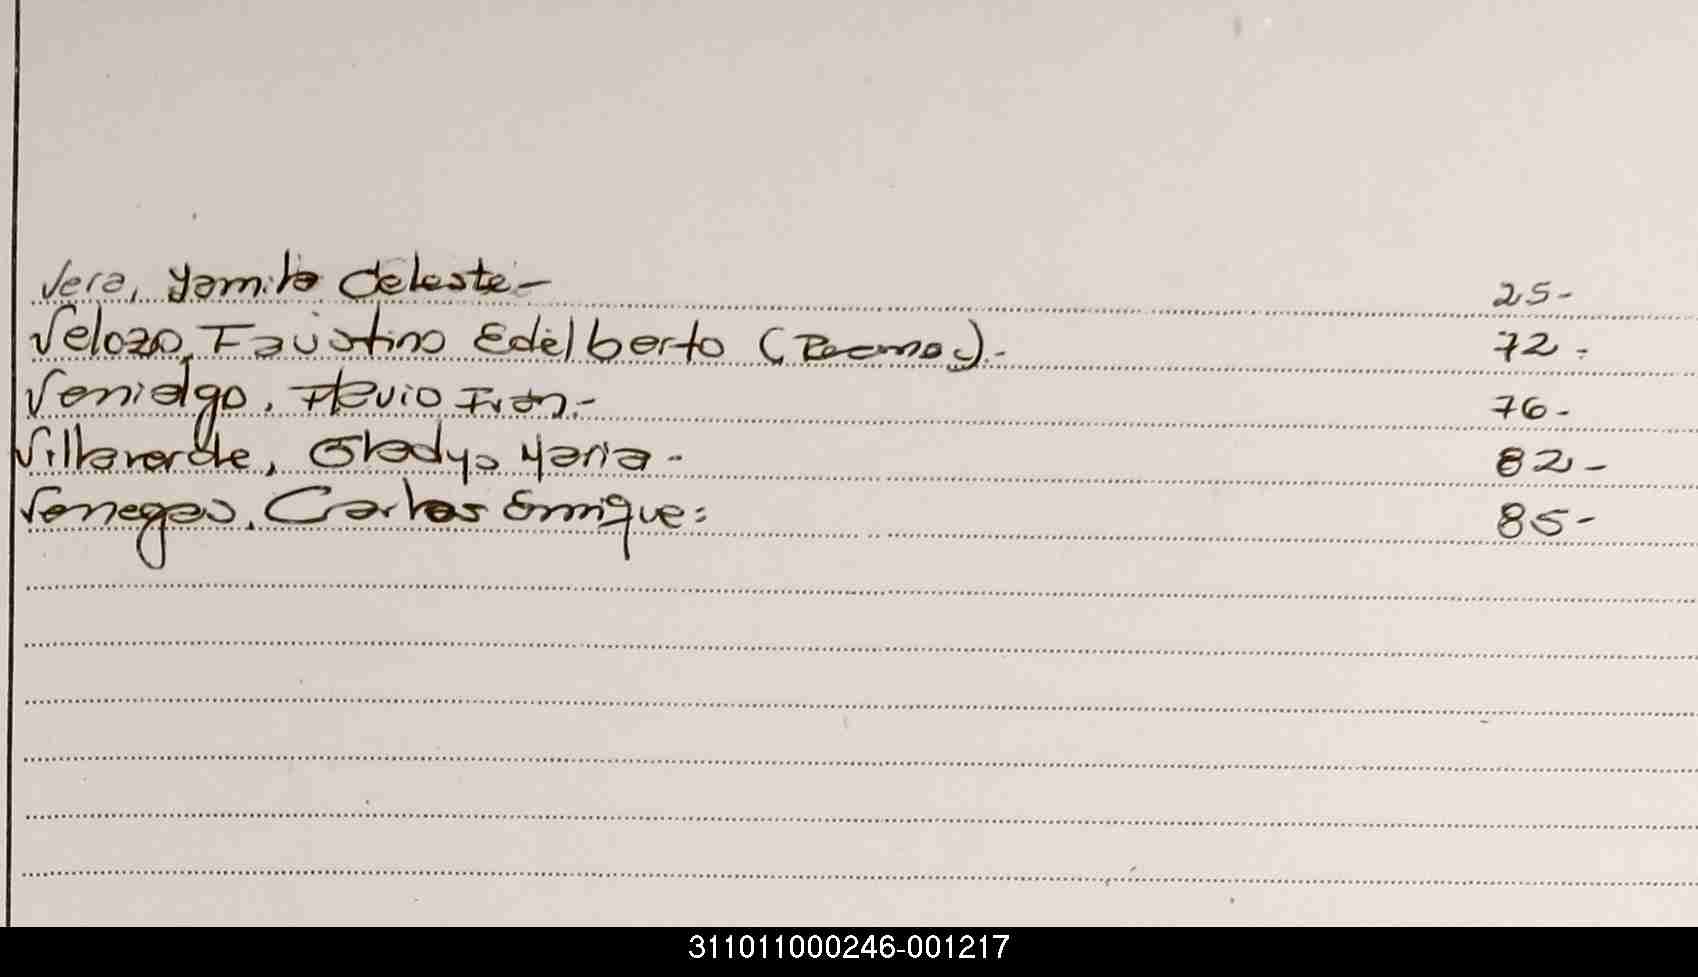 Vera, Yamila Celeste - 25-
Velozo, Faustino Edelberto ( ).- 72.-
Venialgo, Flavio Ivan.- 76-
Villaverde, Gladys Maria - 82-
Venegas, Carlos Enrique: 85-
311011000246-001217